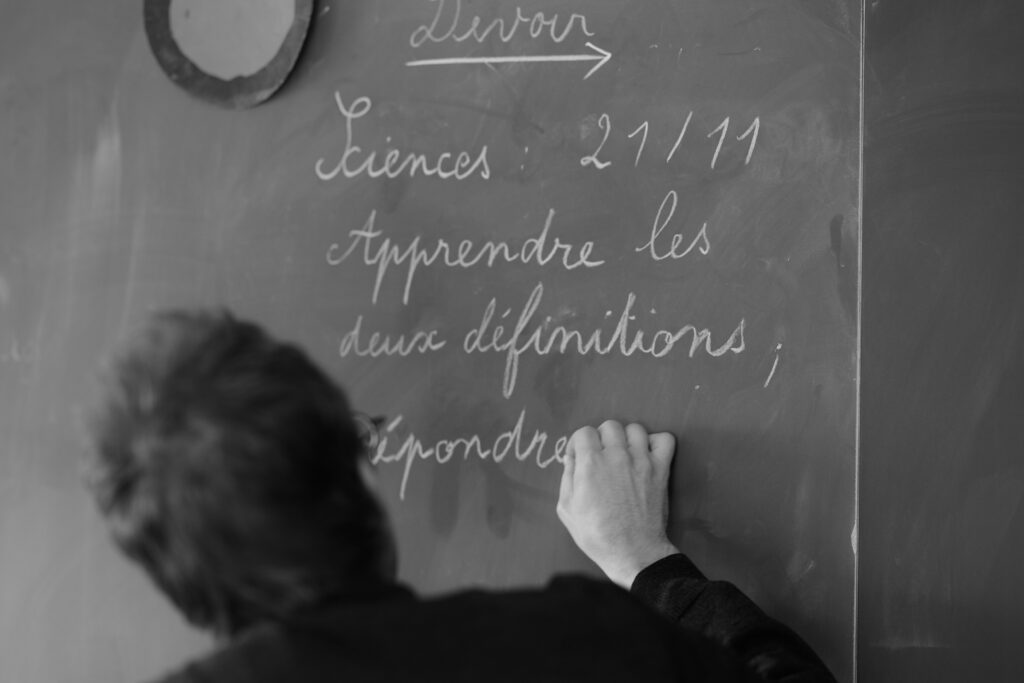 Devoir
Sciences : 21/11
Apprendre les
deux définitions ;
Répondre